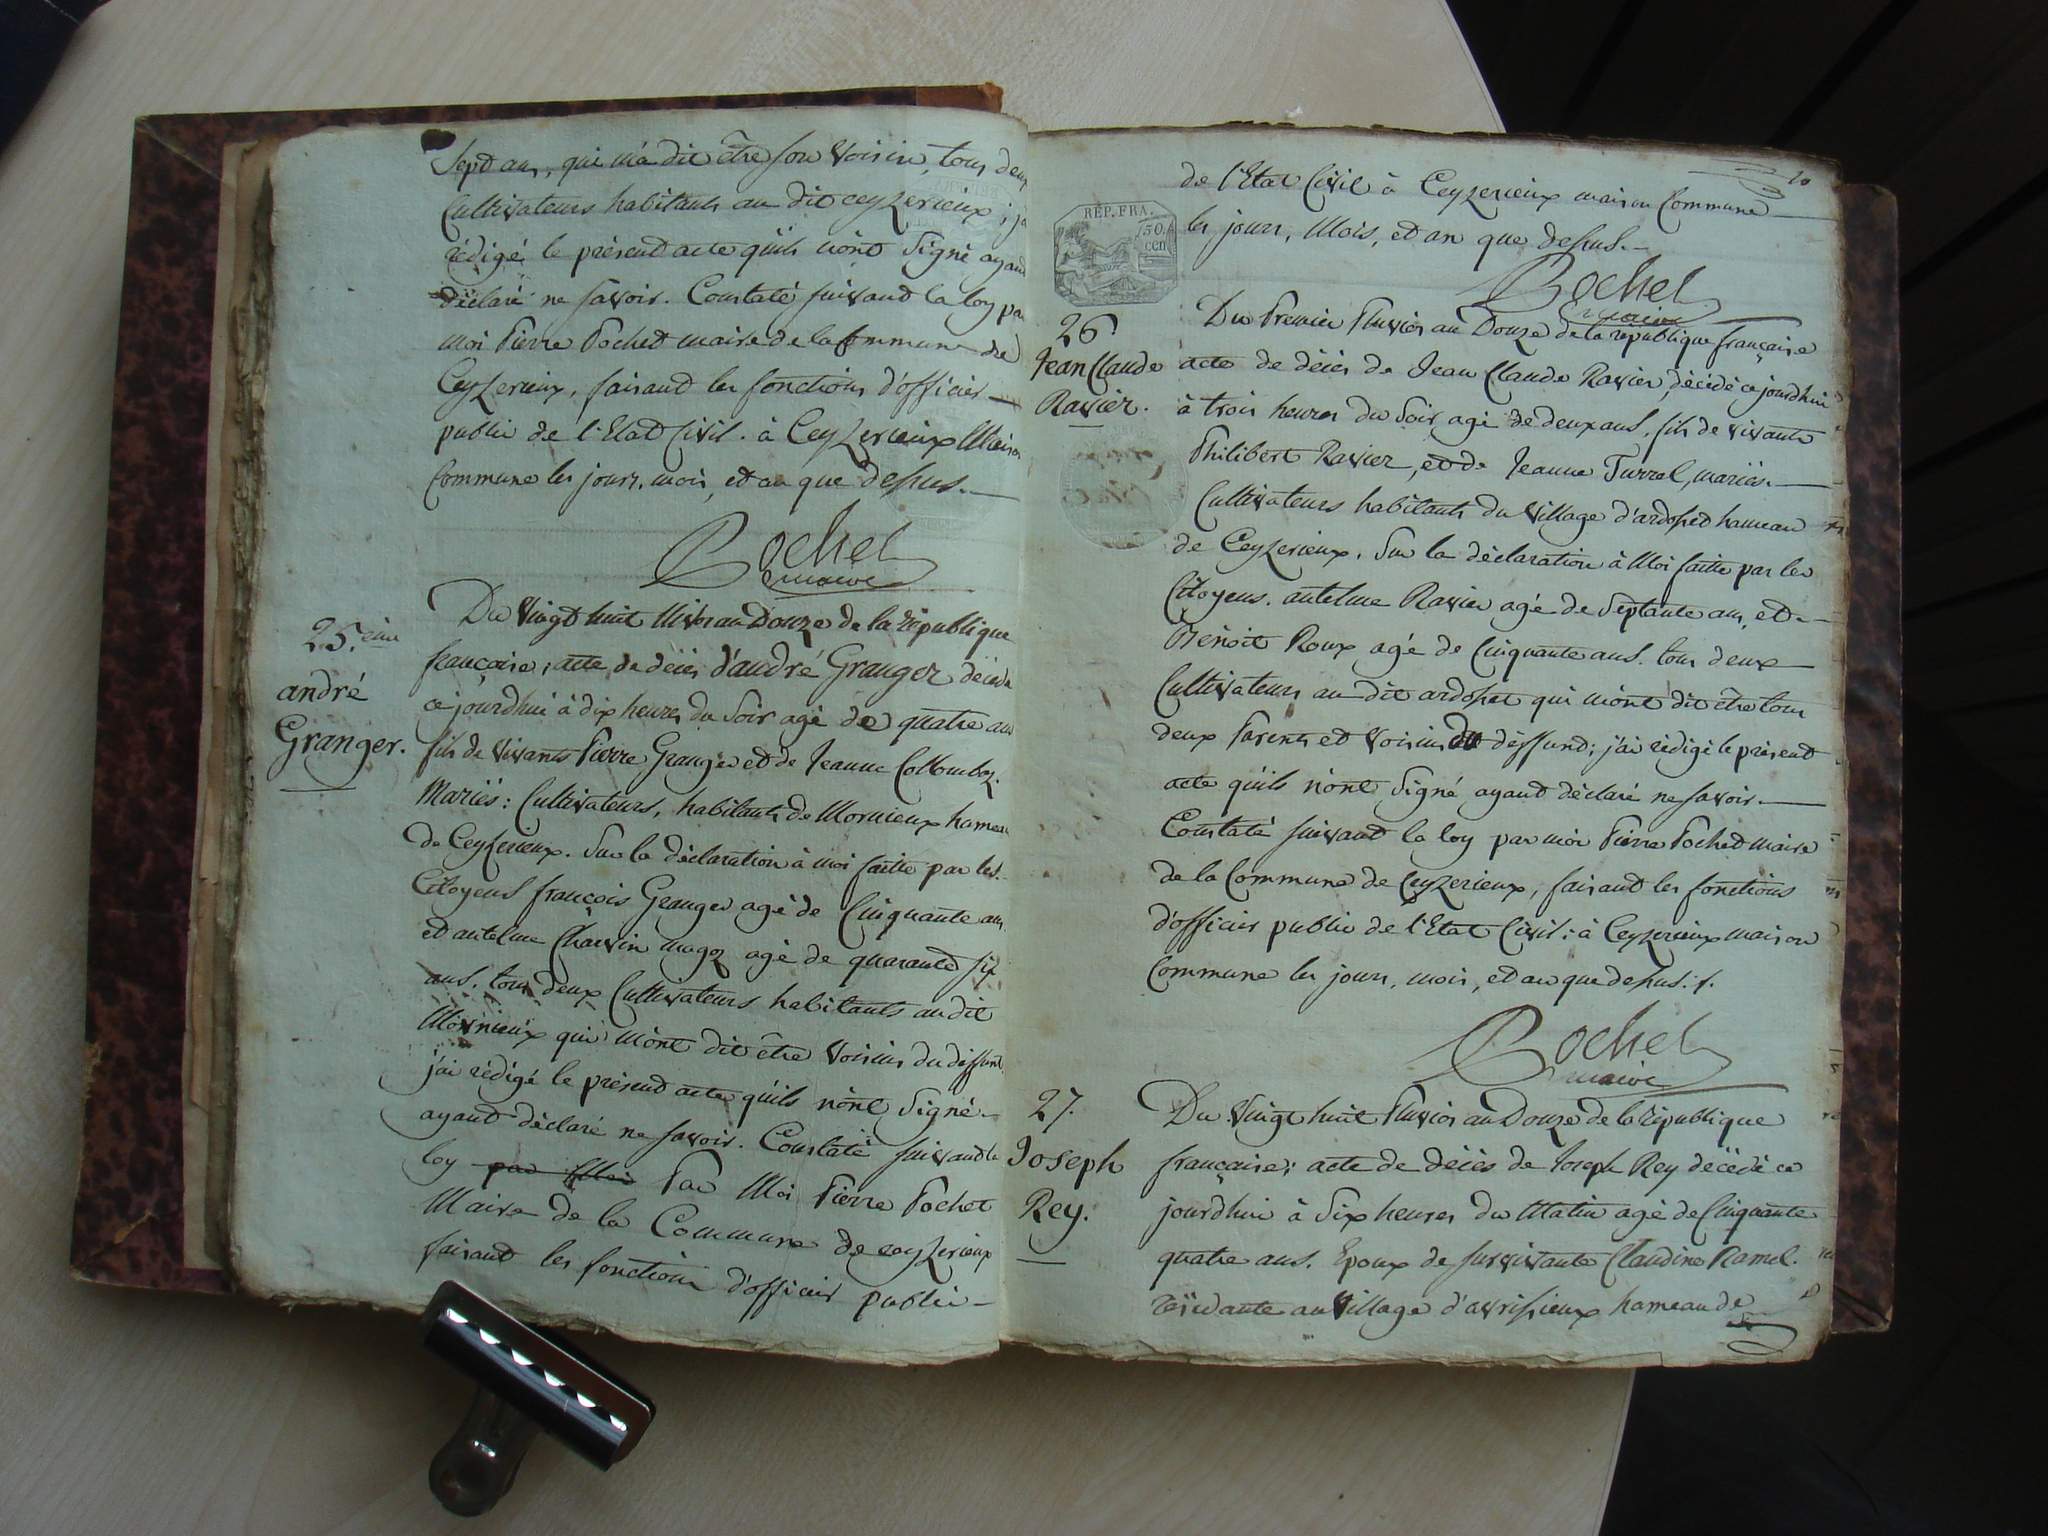 Sept ans, qui m'a dit être son Voisin, tous deux
Cultivateurs habitants au dit ceyzerieux; j'ai
rédigé le présent acte qu'ils n'ont Signé ayant
déclaré ne savoir. Constaté suivant la loy par
moi Pierre Pochet maire de la Commune de
Ceyzerieux, faisant les fonctions d'officier
public de l'Etat Civil. à Ceyzerieux Maison
Commune les jours, mois, et an que dessus.
Pochet
maire
25.ème
andré
Granger.
Du Vingt huit Nivos an Douze de la république
française, acte de décès d'andré Granger décédé
ce jourdhui à dix heures du Soir agé de quatre ans
fils de vivants Pierre Granger et de Jeanne Collomboz.
Mariés: Cultivateurs, habitants de Mornieux hameau
de Ceyzerieux. Sur la déclaration à moi faitte par les
Citoyens françois Granger agé de Cinquante ans
et antelme Charvin magoz agé de quarante six
ans. tous deux Cultivateurs habitants au dit
Mornieux qui m'ont dit être Voisins du deffunt,
j'ai rédigé le présent acte qu'ils n'ont Signé
ayant déclaré ne savoir. Constaté suivant la
loy par Moi Par Moi Pierre Pochet
Maire de la Commune de ceyzerieux
faisant les fonctions d'officier public
20
de l'Etat Civil à Ceyzerieux maison Commune
les jours, Mois, et an que dessus.
Pochet
maire
REP. FRA.
50.
cen
26
Jean Claude
Ravier.
Du Premier Pluvios an Douze de la république française
acte de décès de Jean Claude Ravier, décédé ce jourdhui
à trois heures du Soir agé de deux ans, fils de vivants
Philibert Ravier, et de Jeanne Turrel, mariés.
Cultivateurs habitants du Village d'ardosset hameau
de Ceyzerieux. Sur la déclaration à Moi faitte par les
Citoyens. antelme Ravier agé de Septante ans, et
Benoit Roux agé de Cinquante ans. tous deux
Cultivateurs au dit ardosset qui m'ont dit être tous
deux Parents et voisins du deffunt; j'ai rédigé le présent
acte qu'ils n'ont Signé ayant déclaré ne savoir.
Constaté suivant la loy par moi Pierre Pochet maire
de la Commune de Ceyzerieux, faisant les fonctions
d'officier public de l'Etat Civil: à Ceyzerieux maison
Commune les jours, mois, et an que dessus.
Pochet
maire
27.
Joseph
Rey.
Du Vingt huit Pluvios an Douze de la république
française; acte de décès de Joseph Rey décédé ce
jourdhui à Six heures du Matin agé de Cinquante
quatre ans. Epoux de survivante Claudine Ramel.
résidante au Village d'avrissieux hameau de